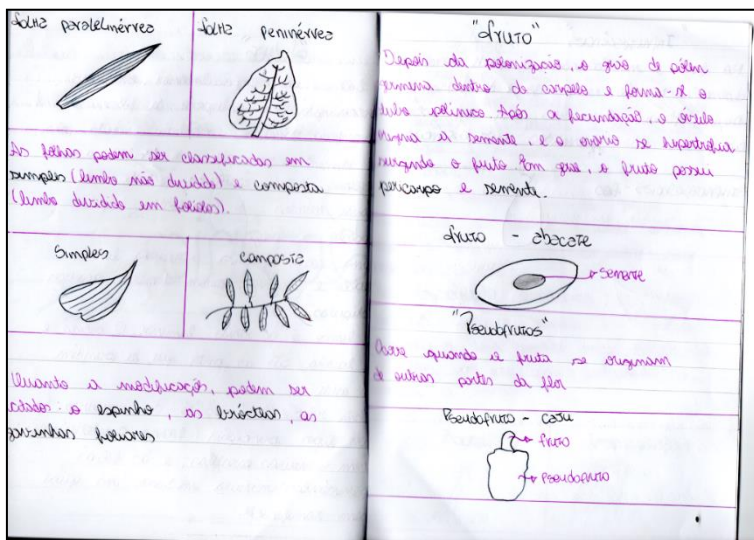 folha paralelinérvea
folha peninérvea
As folhas podem ser classificadas em
simples (limbo não dividido) e composta
(limbo dividido em folíolos).
Simples
composta
Quanto a modificação, podem ser
citados: o espinho, as brácteas, as
gavinhas foliares
"fruto"
Depois da polenização, o grão de pólen
germina dentro do carpelo e forma-se o
tubo polínico. Após a fecundação, o óvulo
origina a semente, e o ovário se hipertrofia
surgindo o fruto. Em que, o fruto possui
pericarpo e semente.
fruto - abacate
semente
"Pseudofrutos"
Ocorre quando a fruta se originam
de outras partes da flor
Pseudofruto - caju
fruto
Pseudofruto